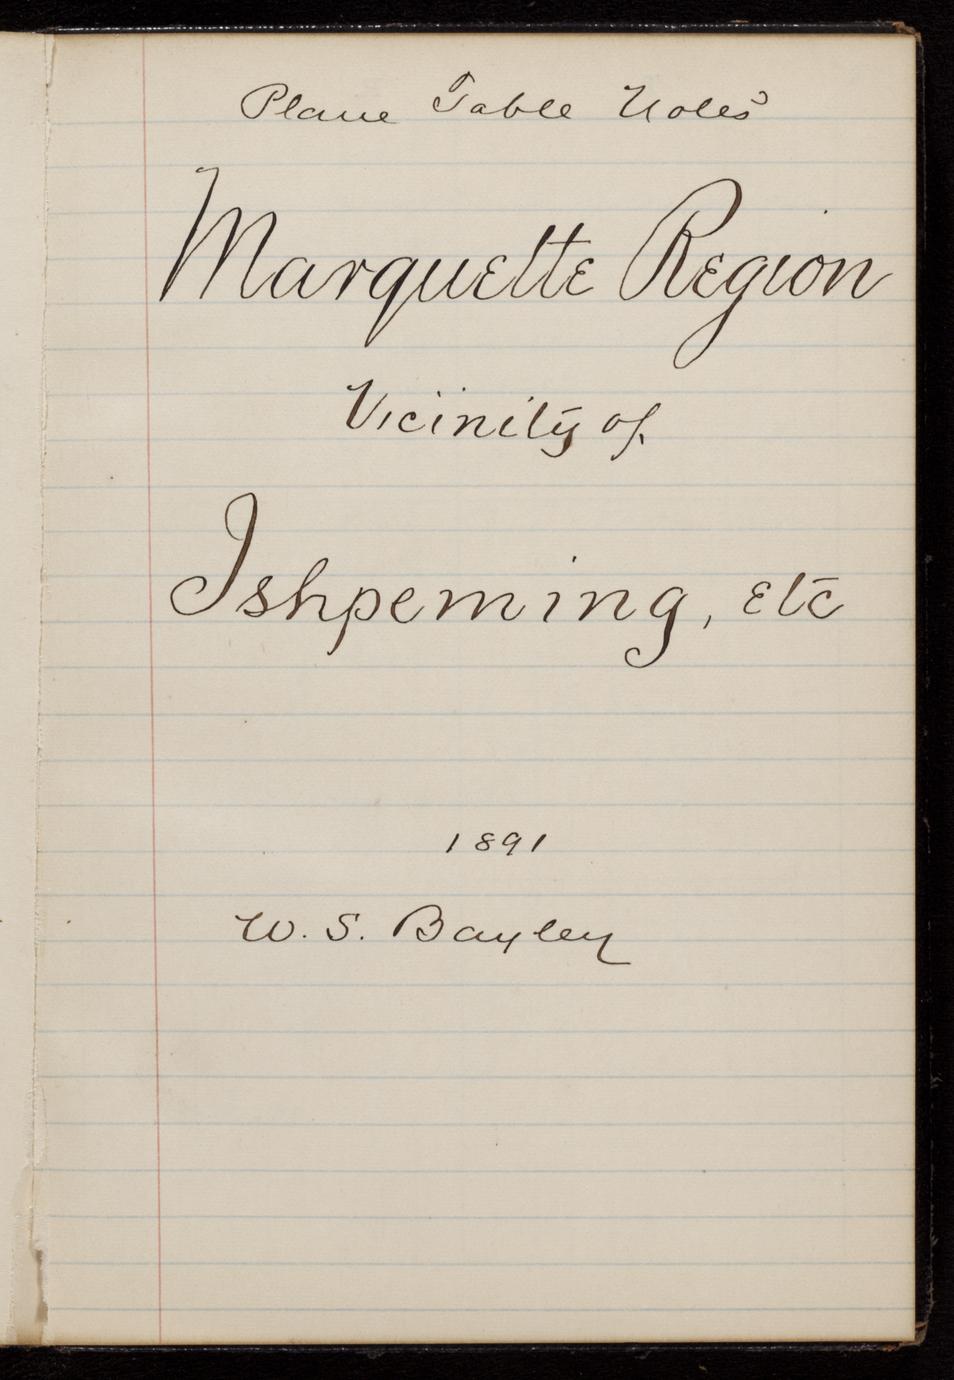 Plane Table Notes
Marquette Region
Vicinity of
Ishpeming, etc
1891
W. S. Bayley